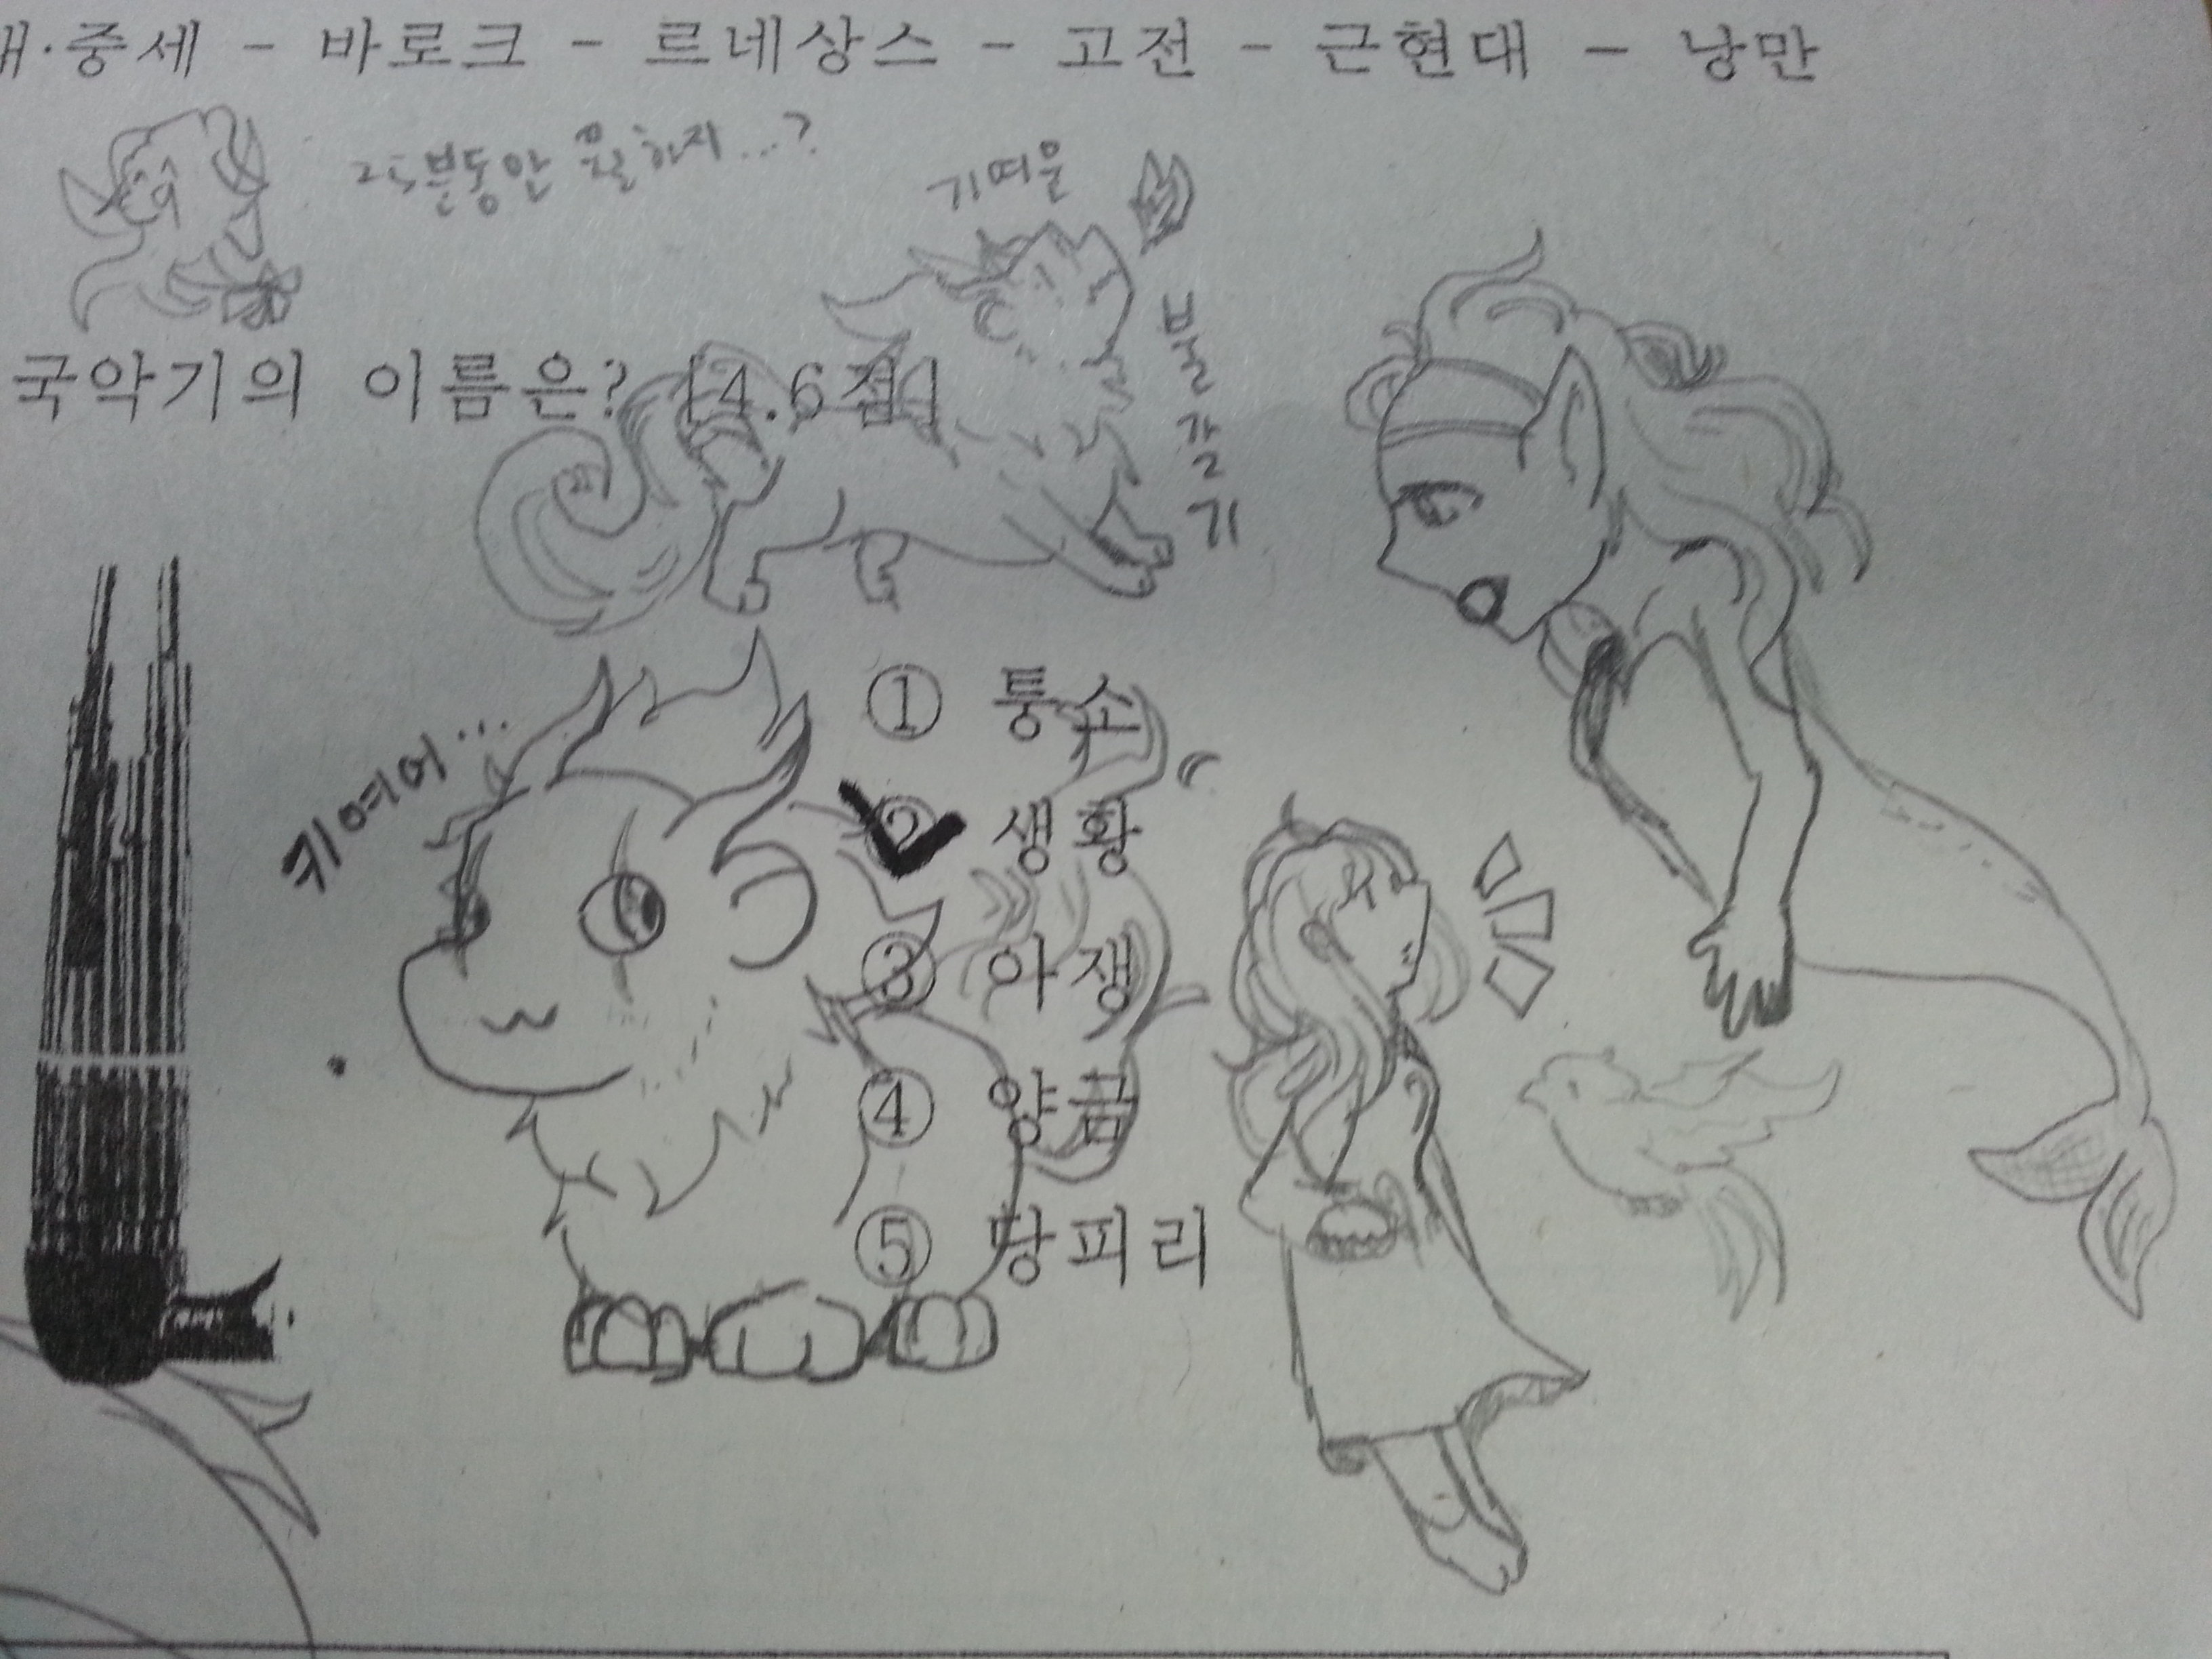 대·중세 - 바로크 - 르네상스 - 고전 - 근현대 - 낭만
25분동안 뭘하지...?
기여운
발갈기
국악기의 이름은? [4.6점]
키여어...
① 퉁소
② 생황
③ 아쟁
④ 양금
⑤ 당피리